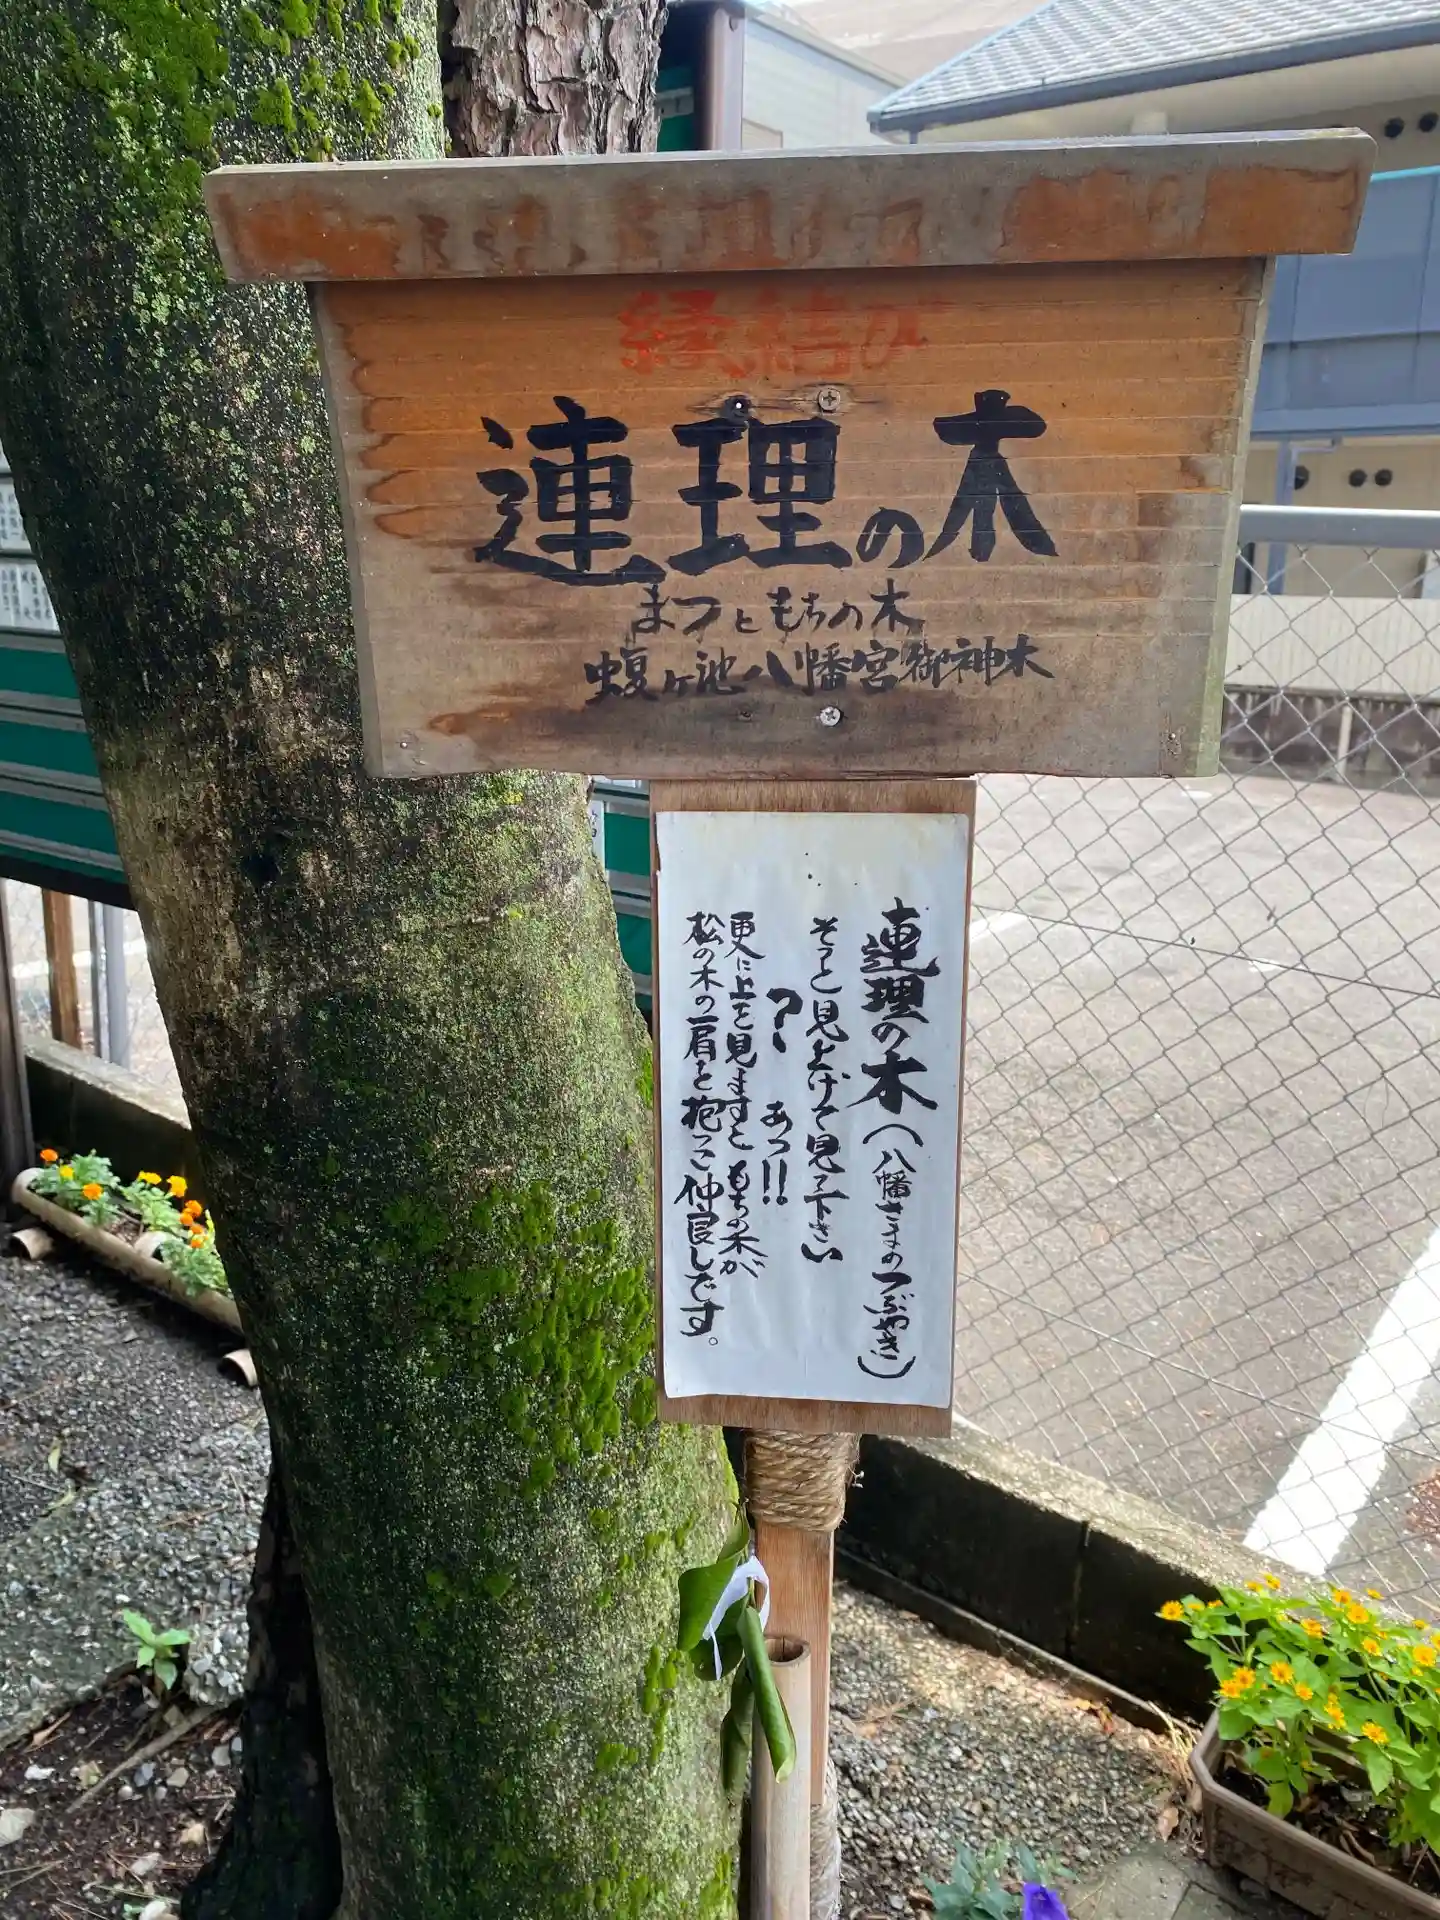 縁結び
連理の木
まつともちの木
蝮ヶ池八幡宮御神木
連理の木（八幡さまのつぶやき）
そっと見上げて見て下さい
？！ あっ!!
更に上を見ますともちの木が
松の木の肩を抱っこ仲良しです。